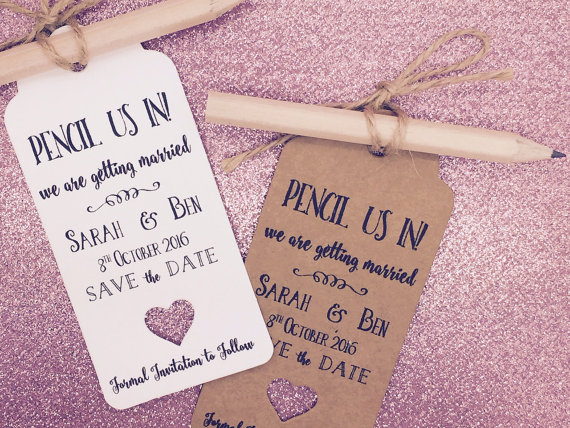 PENCIL US IN!
we are getting married
SARAH & BEN
8TH OCTOBER 2016
SAVE the DATE
Formal Invitation to Follow
PENCIL US IN!
we are getting married
SARAH & BEN
8TH OCTOBER 2016
the DATE
Formal